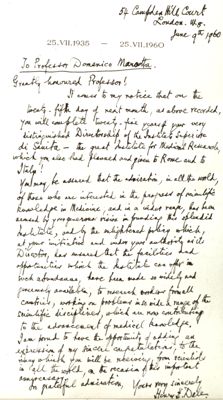 54 Campden Hill Court
London. W.8.
June 9th 1960
25.VII.1935 — 25.VII.1960
To Professor Domenico Marotta
Greatly honoured Professor!
It comes to my notice that on the
twenty-fifth day of next month, as above recorded,
you will complete twenty-five years of your very
distinguished Directorship of the Istituto Superiore
di Sanità - the great Institute for Medical Research,
which you also had planned and given to Rome and to
Italy!
You may be assured that the admiration, in all the world,
of those who are interested in the progress of scientific
knowledge in Medicine, and in a wider range, has been
aroused by your generous vision in founding this splendid
Institute, and by the enlightened policy which,
at your initiative and under your authority as its
Director, has ensured that the facilities and
opportunities which the Institute can offer in
such abundance, have been made so widely and
generously available, to research workers from all
countries, working on problems in the wide range of the
scientific disciplines, which are now contributing
to the advancement of medical knowledge.
I am proud to have the opportunity of adding an
expression of my sincere congratulations to the
many which you will be receiving, from scientists
in all the world, on the occasion of this important
anniversary!
In grateful admiration, Yours very sincerely
Henry H. Dale.